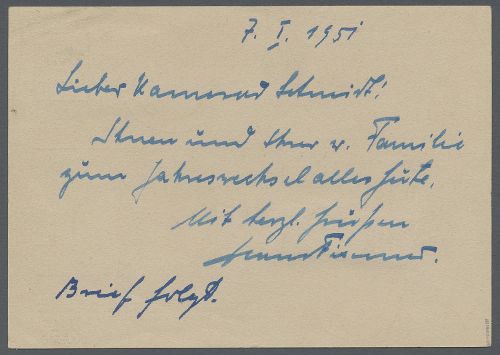 7. I. 1951
Lieber Kamerad Schmidt!
Ihnen und Ihrer w. Familie
zum Jahreswechsel alles Gute.
Mit herzl. Grüßen
Brief folgt.